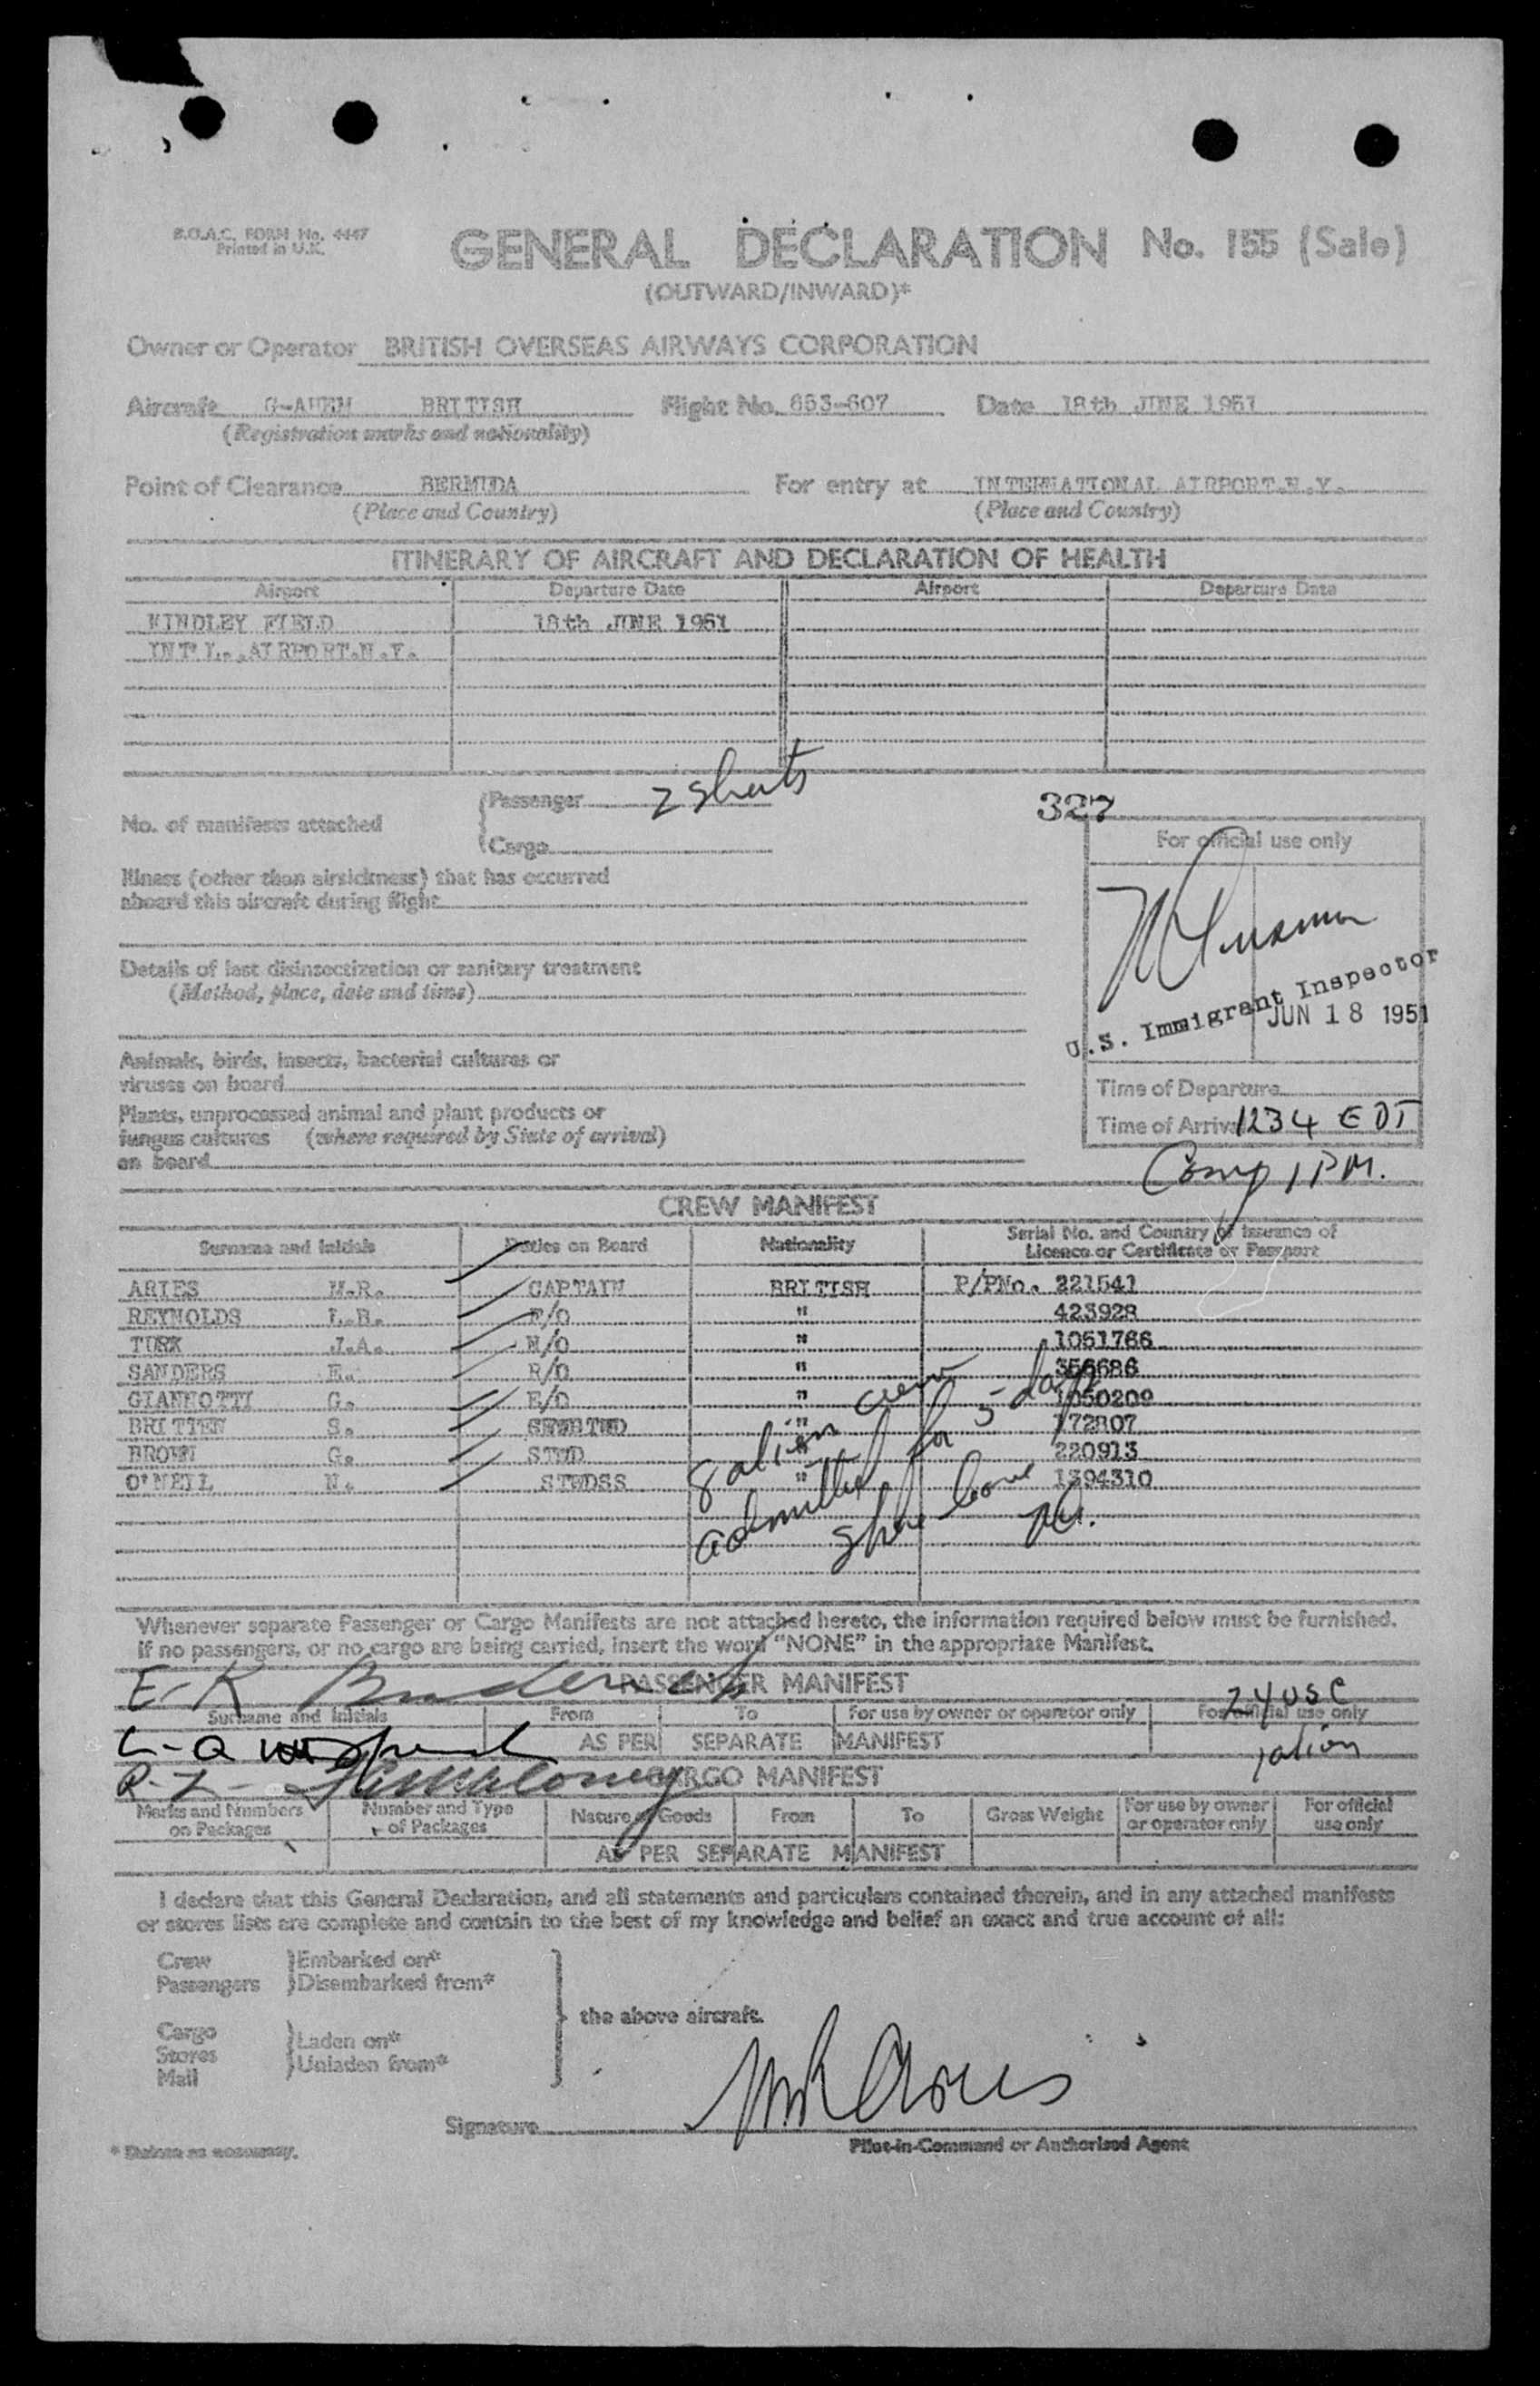 B.O.A.C. FORM No. 4447
Printed in U.K.
GENERAL DECLARATION No. 155 (Sale)
(OUTWARD/INWARD)*
Owner or Operator BRITISH OVERSEAS AIRWAYS CORPORATION
Aircraft BRITISH Flight No. 653-607 Date 18th JUNE 1951
(Registration marks and nationality)
Point of Clearance BERMUDA For entry at INTERNATIONAL AIRPORT.N.Y.
(Place and Country) (Place and Country)
ITINERARY OF AIRCRAFT AND DECLARATION OF HEALTH
Airport Departure Date Airport Departure Date
KINDLEY FIELD 18th JUNE 1951
INT'L. AIRPORT.N.Y.
No. of manifests attached
Passenger 2 sheets
Cargo
327
For official use only
Illness (other than airsickness) that has occurred
aboard this aircraft during flight
Details of last disinsectization or sanitary treatment
(Method, place, date and time)
U.S. Immigrant Inspector
JUN 18 1951
Animals, birds, insects, bacterial cultures or
viruses on board
Time of Departure
Plants, unprocessed animal and plant products or
fungus cultures (where required by State of arrival)
on board
Time of Arrival 1234 EDT
Comp 1 PM.
CREW MANIFEST
Surname and Initials Duties on Board Nationality Serial No. and Country of Issuance of
Licence or Certificate or Passport
ARIES M.R. CAPTAIN BRITISH P/PNo. 221541
REYNOLDS L.B. F/O " 423928
TURK J.A. N/O " 1051766
SANDERS E. R/O " 356686
GIANNOTTI G. E/O " 1050209
BRITTEN S. " 172807
BROWN G. STWD " 220913
O'NEIL N. STWDSS " 1394310
8 alien crew
admitted for 5 days
shore leave
Whenever separate Passenger or Cargo Manifests are not attached hereto, the information required below must be furnished.
If no passengers, or no cargo are being carried, insert the word "NONE" in the appropriate Manifest.
E-K
PASSENGER MANIFEST
24 USC
Surname and Initials From To For use by owner or operator only For official use only
AS PER SEPARATE MANIFEST
1 alien
CARGO MANIFEST
Marks and Numbers on Packages Number and Type of Packages Nature of Goods From To Gross Weight For use by owner or operator only For official use only
AS PER SEPARATE MANIFEST
I declare that this General Declaration, and all statements and particulars contained therein, and in any attached manifests
or stores lists are complete and contain to the best of my knowledge and belief an exact and true account of all:
Crew Embarked on*
Passengers Disembarked from*
the above aircraft.
Cargo Laden on*
Stores Unladen from*
Mail
Signature MR Aries
Pilot-in-Command or Authorised Agent
* Delete as necessary.